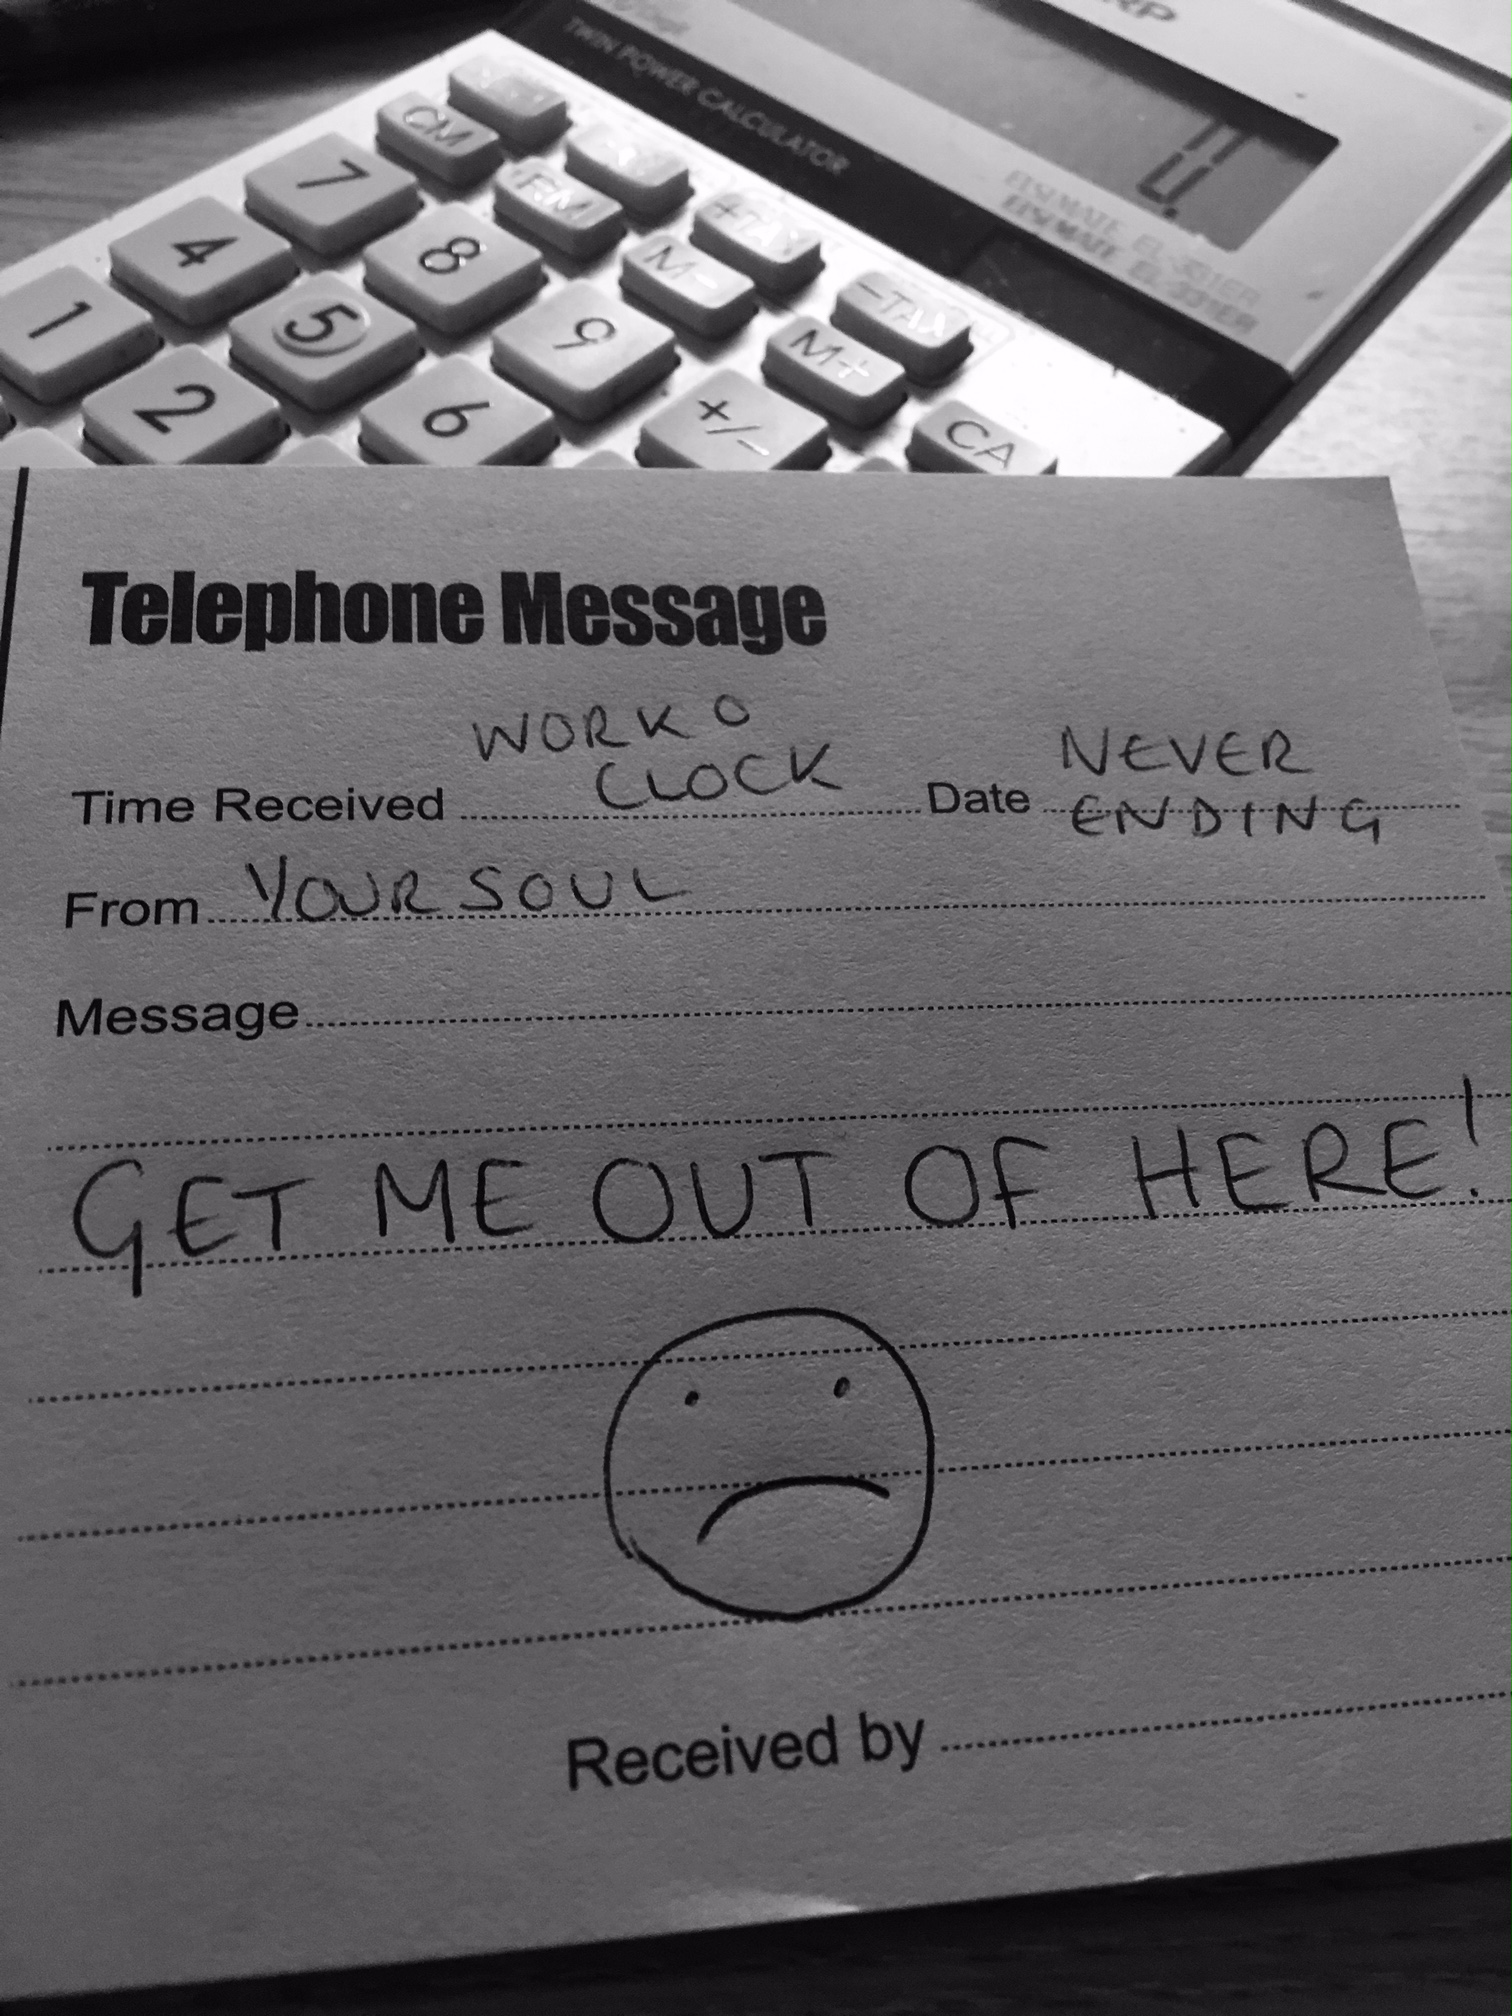 RP
TWIN POWER CALCULATOR
0.
ELSI MATE EL-331ER
CM
RM
+TAX
-TAX
7
8
9
M-
M+
4
5
6
+/-
CA
1
2
Telephone Message
WORK O
CLOCK
NEVER
Time Received Date
ENDING
From YOUR SOUL
Message
GET ME OUT OF HERE!
Received by